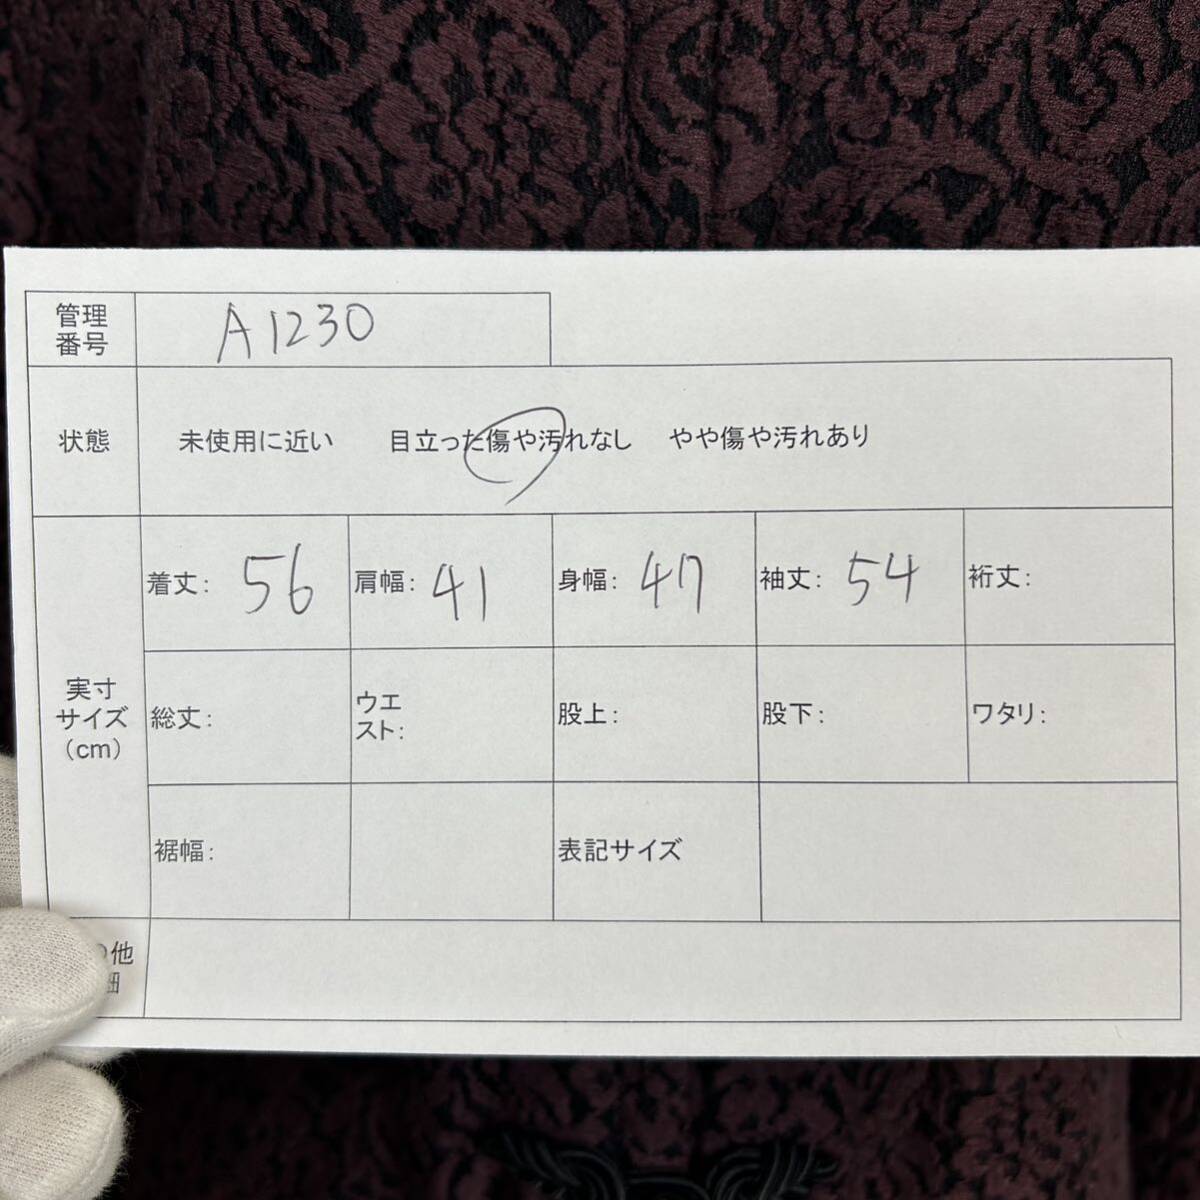 管理
番号
A1230
状態
未使用に近い 目立った傷や汚れなし やや傷や汚れあり
実寸
サイズ
(cm)
着丈: 56
肩幅: 41
身幅: 47
袖丈: 54
裄丈:
総丈:
ウエ
スト:
股上:
股下:
ワタリ:
裾幅:
表記サイズ
他